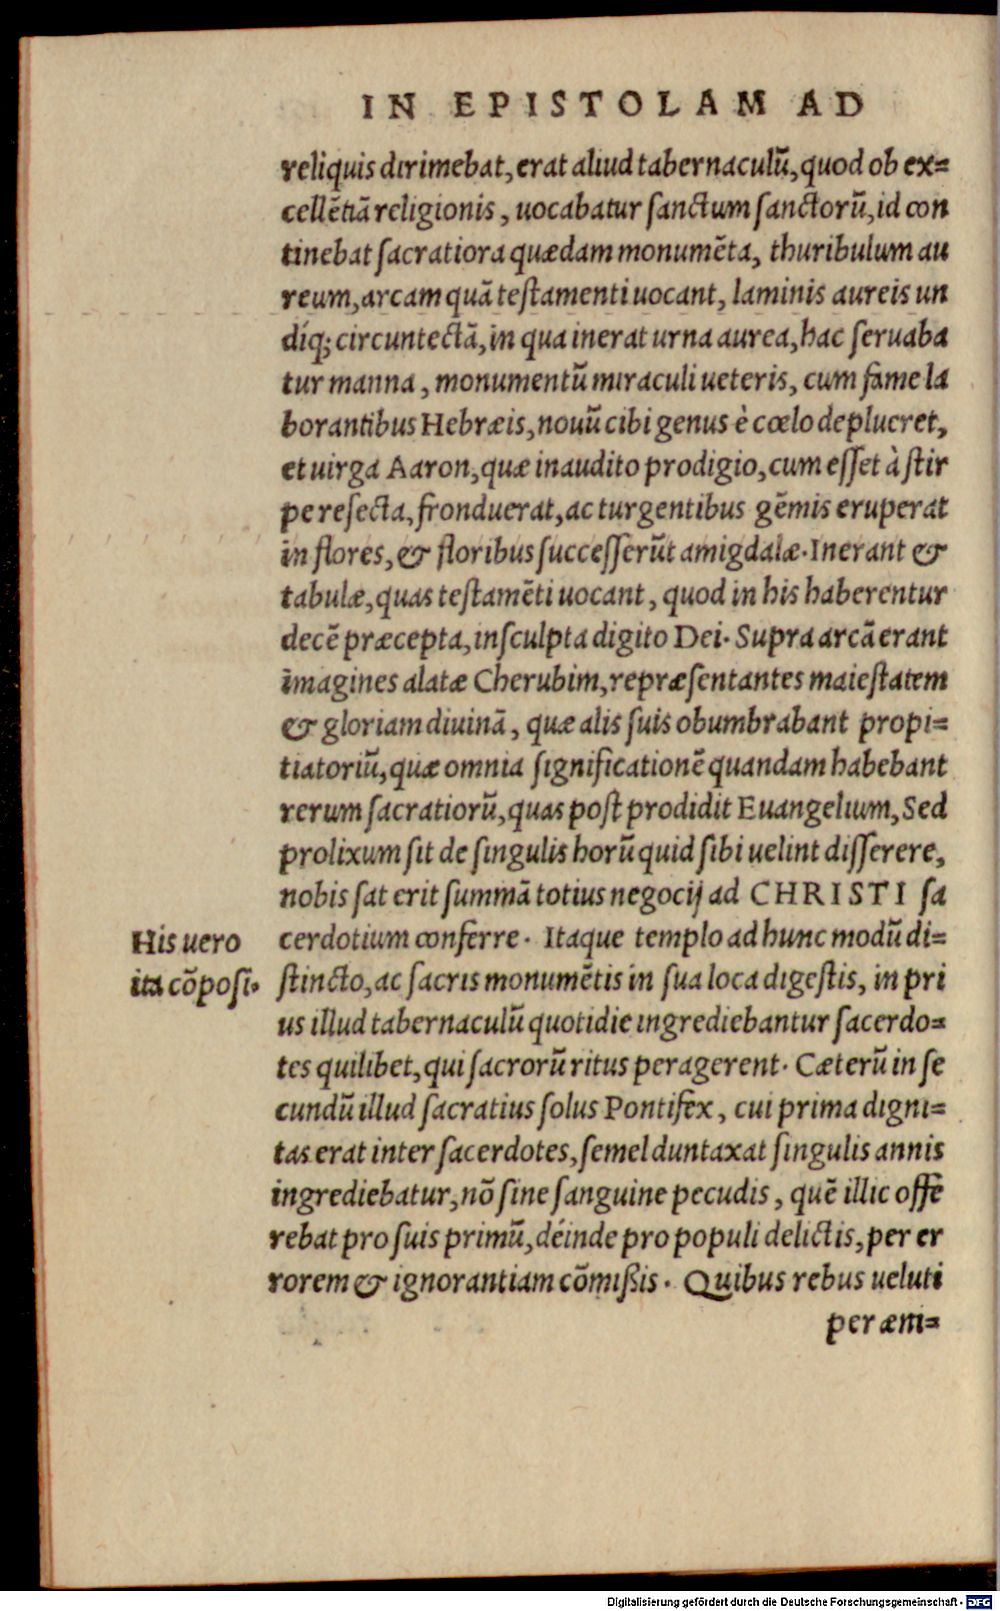 IN EPISTOLAM AD
reliquis dirimebat, erat aliud tabernaculũ, quod ob ex=
cellẽtiã religionis, uocabatur ſanctum ſanctorũ, id con
tinebat ſacratiora quædam monumẽta, thuribulum au
reum, arcam quã teſtamenti uocant, laminis aureis un
díq; circuntectã, in qua inerat urna aurea, hac ſeruaba
tur manna, monumentũ miraculi ueteris, cum fame la
borantibus Hebræis, nouũ cibi genus è cœlo deplueret,
et uirga Aaron, quæ inaudito prodigio, cum eſſet à ſtir
pe reſecta, fronduerat, ac turgentibus gẽmis eruperat
in flores, & floribus ſucceſſerũt amigdalæ. Inerant &
tabulæ, quas teſtamẽti uocant, quod in his haberentur
decẽ præcepta, inſculpta digito Dei. Supra arcã erant
imagines alatæ Cherubim, repræſentantes maieſtatem
& gloriam diuinã, quæ alis ſuis obumbrabant propi=
tiatoriũ, quæ omnia ſignificationẽ quandam habebant
rerum ſacratiorũ, quas poſt prodidit Euangelium, Sed
prolixum ſit de ſingulis horũ quid ſibi uelint diſſerere,
nobis ſat erit ſummã totius negocij ad CHRISTI ſa
His uero
ita cõpoſi.
cerdotium conferre. Itaque templo ad hunc modũ di=
ſtincto, ac ſacris monumẽtis in ſua loca digeſtis, in pri
us illud tabernaculũ quotidie ingrediebantur ſacerdo=
tes quilibet, qui ſacrorũ ritus peragerent. Cæterũ in ſe
cundũ illud ſacratius ſolus Pontifex, cui prima digni=
tas erat inter ſacerdotes, ſemel duntaxat ſingulis annis
ingrediebatur, nõ ſine ſanguine pecudis, quẽ illic offe
rebat pro ſuis primũ, déinde pro populi delictis, per er
rorem & ignorantiam cõmißis. Quibus rebus ueluti
per æm=
Digitalisierung gefördert durch die Deutsche Forschungsgemeinschaft - DFG